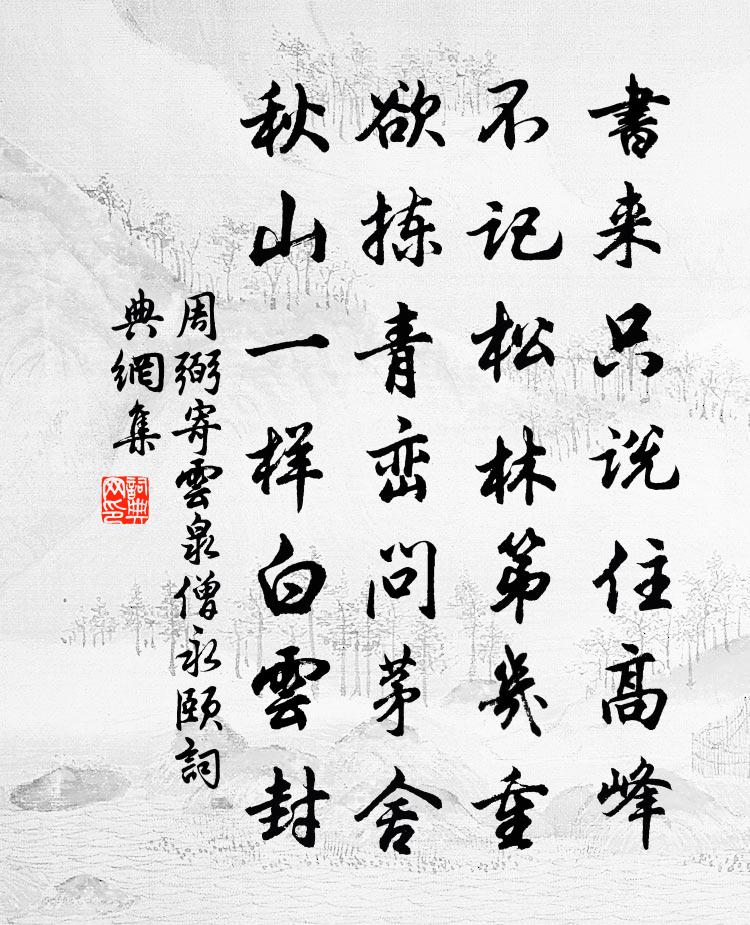 書来只说住高峰
不记松林第几重
欲拣青峦问茅舍
秋山一样白雲封
周弼寄雲泉僧永颐詞
典網集
詞典
网印